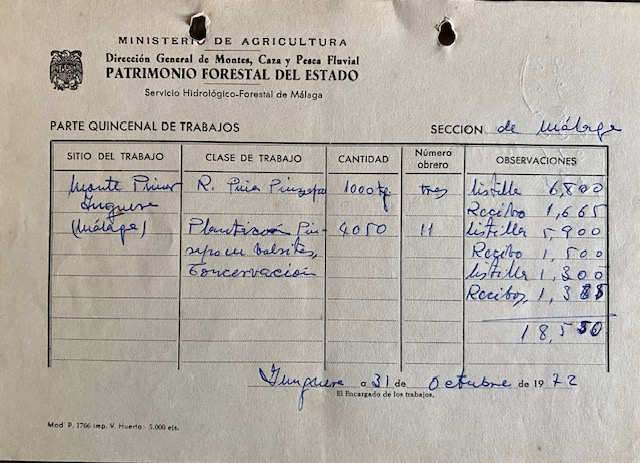 MINISTERIO DE AGRICULTURA
Dirección General de Montes, Caza y Pesca Fluvial
PATRIMONIO FORESTAL DEL ESTADO
Servicio Hidrológico-Forestal de Málaga
PARTE QUINCENAL DE TRABAJOS SECCION de Málaga
SITIO DEL TRABAJO CLASE DE TRABAJO CANTIDAD Número obrero OBSERVACIONES
Monte Pinar R. Piña Pinzapo 1000 kg tres listilla 6,800
Yunquera Recibo 1,665
(Málaga) Plantación Pin- 4050 11 listilla 5,900
sapo en bolsites, Recibo 1,500
Concervación listilla 1,300
Recibos, 1,385
18,550
Yunquera a 31 de octubre de 1972
El Encargado de los trabajos.
Mod P. 1766 imp. V. Huerto - 5.000 ejs.